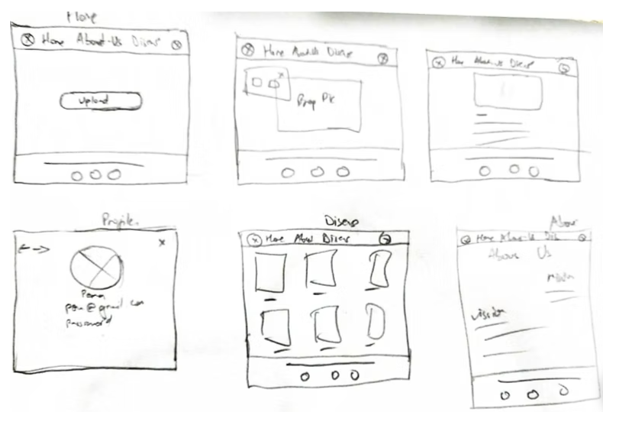 Home
Home About-Us Diseas
upload
Home About-Us Diseas
Drop Pic
Home About-Us Diseas
Profile
x
Pena
pena@gmail.com
password
Diseas
Home About Diseas
About
Home About-Us Dis
About Us
mission
vission